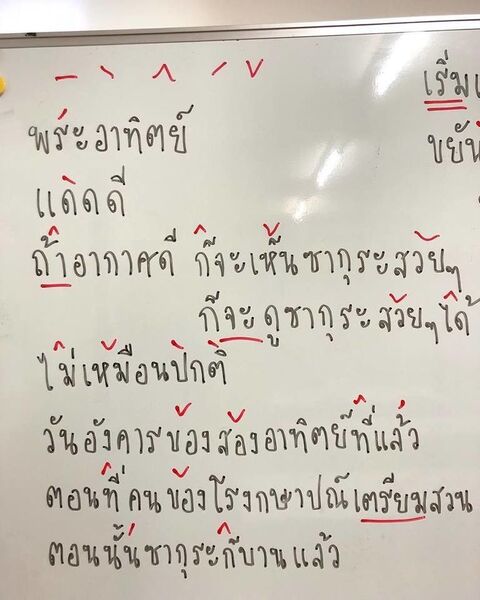 เริ่ม
พระอาทิตย์
ขยัน
แดดดี
ถ้าอากาศดี ก็จะเห็นซากุระสวยๆ
ก็จะดูซากุระสวยๆได้
ไม่เหมือนปกติ
วันอังคารของสองอาทิตย์ที่แล้ว
ตอนที่คนของโรงกษาปณ์เตรียมสวน
ตอนนั้นซากุระก็บานแล้ว